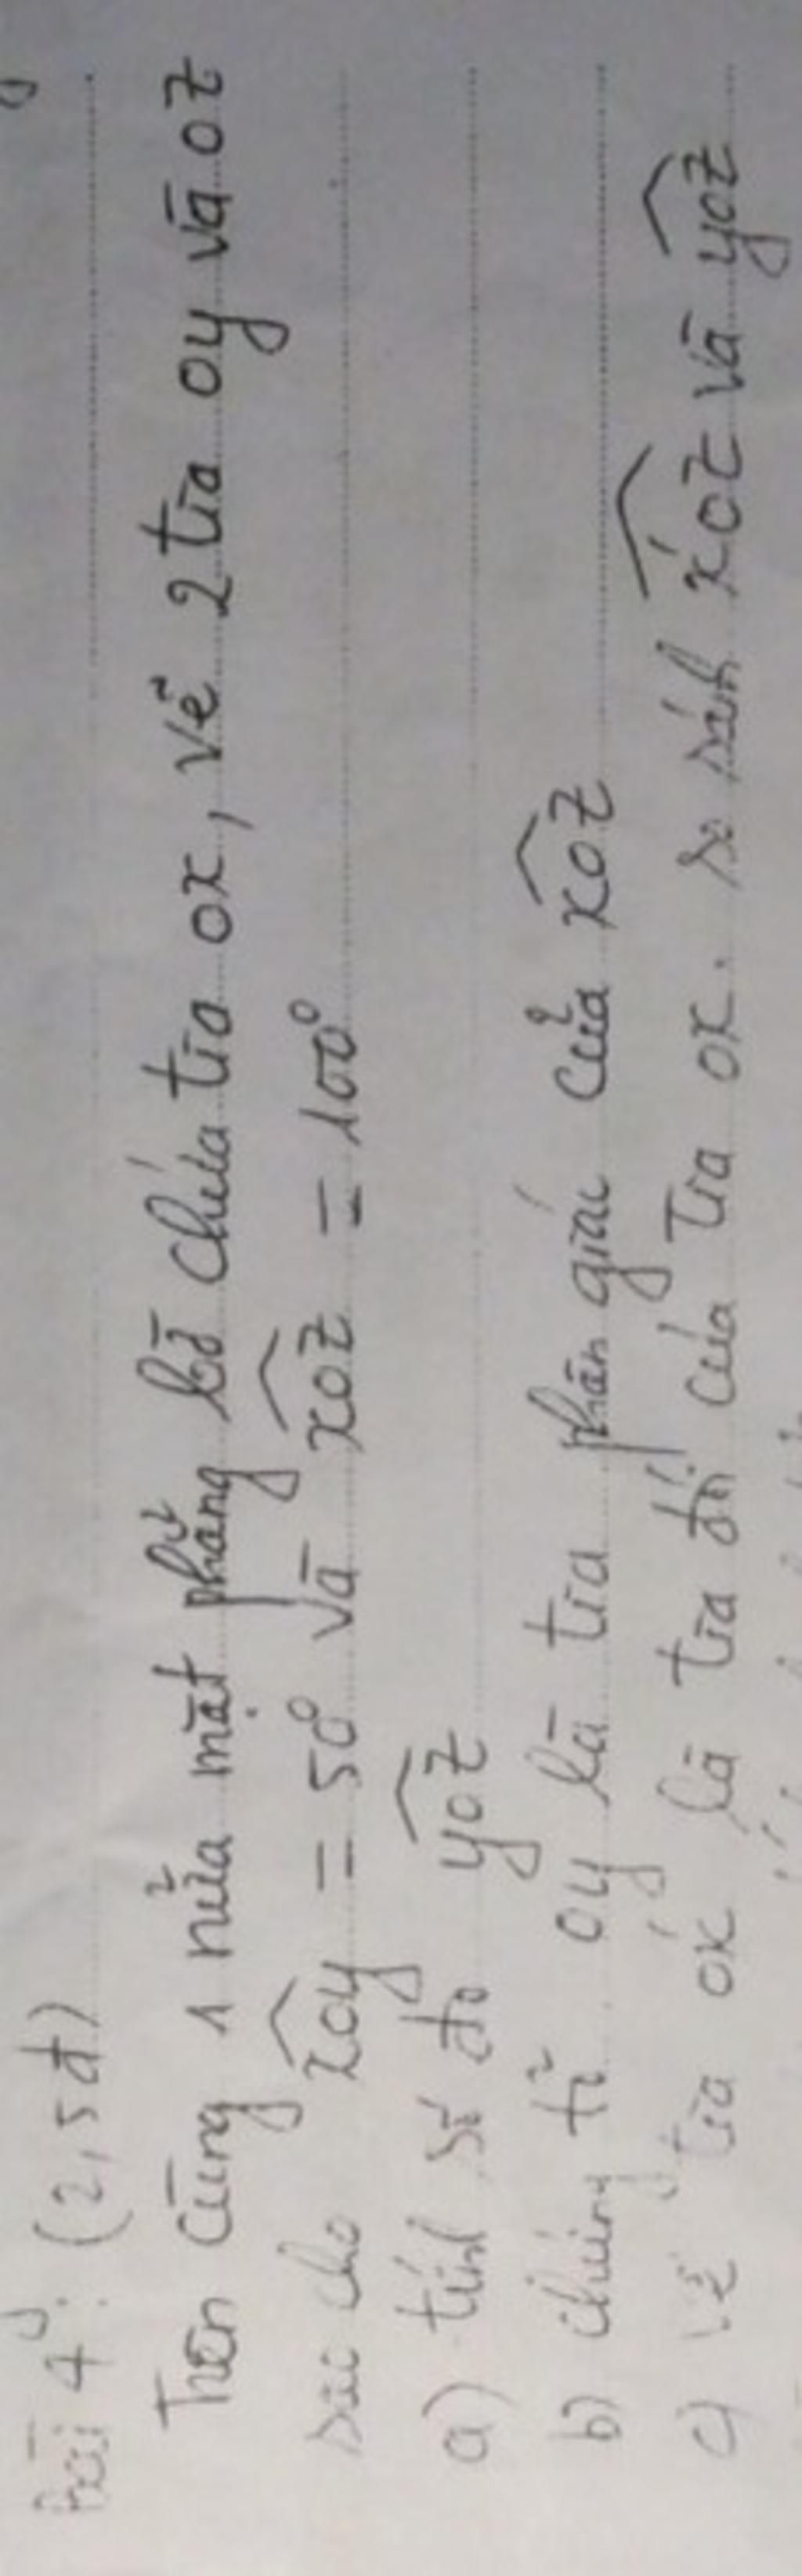 Bài 4: (2,5đ)
Trên cùng 1 nửa mặt phẳng bờ chứa tia ox, vẽ 2 tia oy và oz
sao cho xoy = 50° và xoz = 100°
a) tính số đo yoz
b) chứng tỏ oy là tia phân giác của xoz
c) vẽ tia ox' là tia đối của tia ox. so sánh x'oz và yoz